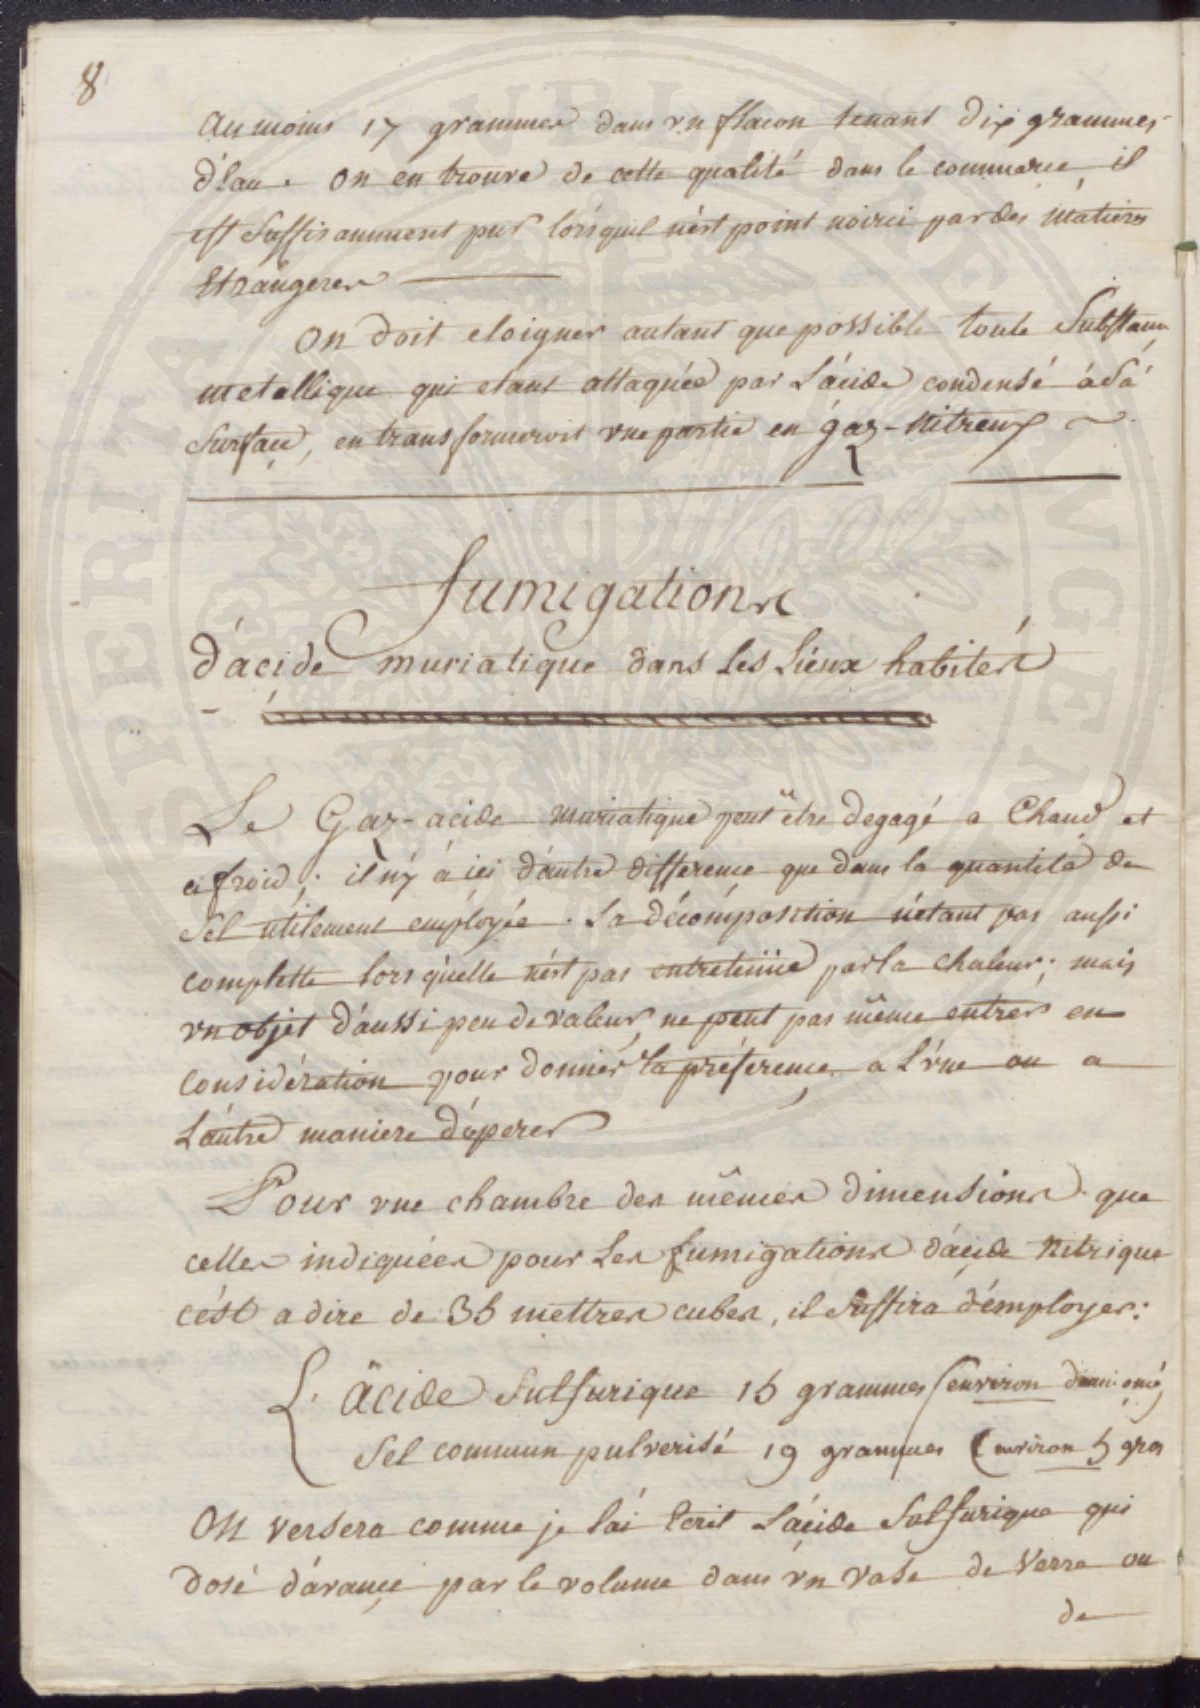 8
au moins 17 grammes dans vn flacon tenant dix grammes
d'Eau. on en trouve de cette qualité dans le commerce, il
est suffisamment pur lórsquil nést point noirci par des matieres
Etrangeres
on doit eloigner autant que possible toute Substance
metallique qui etant attaquée par L'ácide condensé à sá
surface, en transformeroit vne partie en gaz-nitreux
fumigations
d'ácide muriatique dans les Lieux habités
Le Gaz-acide muriatique peut être degagé a Chaud et
a froid; il n'y à ici d'áutre difference que dans la quantité de
sel utilement employée. La décomposition n'étant pas aussi
complette lors qu'elle n'ést pas entretenüe par la chaleur; mais
vn objet d'áussi peu de valeur, ne peut pas même entrer en
considération pour donner la préference, a L'vne ou a
L'áutre maniere d'ópérer
Pour vne chambre des mêmes dimensions que
celles indiquées pour Les fumigations d'ácide nitrique
c'ést a dire de 35 mettres cubes, il suffira d'émployer:
L'âcide Sulfurique 15 grammes (environ demi once)
Sel commun pulverisé 19 grammes (environ 5 gros
On versera comme je l'ái Ecrit L'ácide Sulfurique qui
dosé d'ávance par le volume dans vn vase de Verre ou
de
PERITA